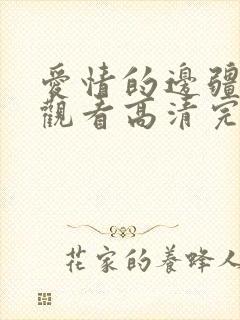 愛情的邊疆
觀看高清完
花家的養蜂人